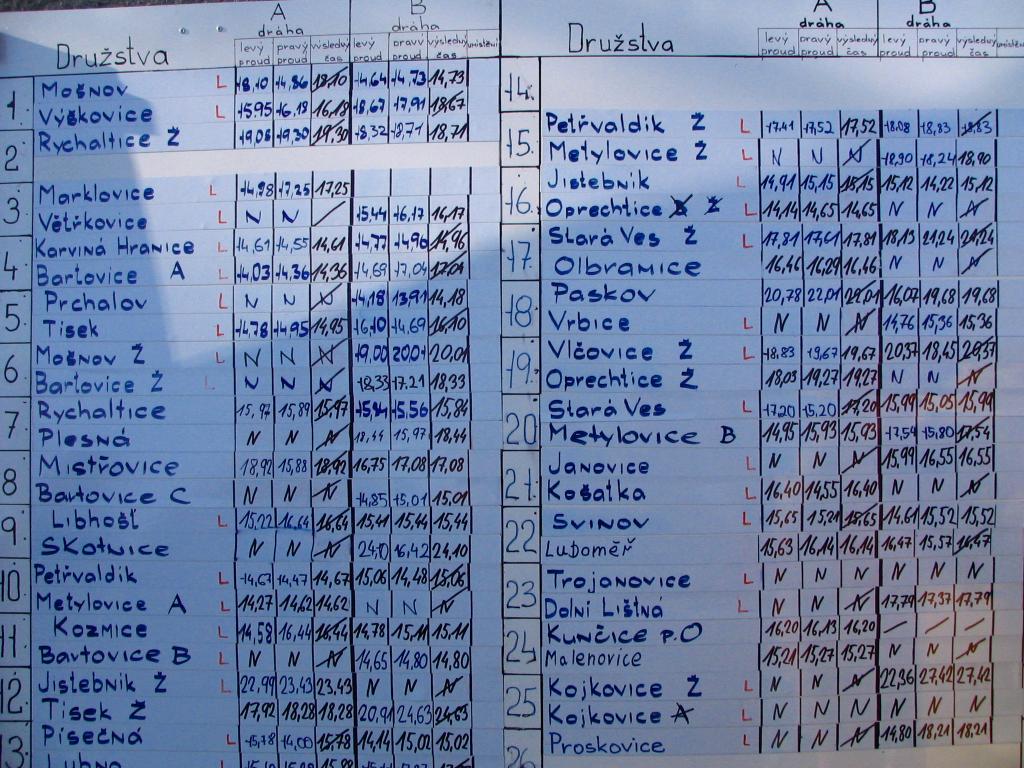 A B
dráha dráha
Družstva levý proud pravý proud výsledný čas levý proud pravý proud výsledný čas umístění
1 Mošnov L 18,10 14,86 18,10 14,64 14,73 14,73
Výškovice L 15,95 16,18 16,18 18,67 17,91 18,67
2 Rychaltice Ž 19,08 19,30 19,30 18,32 18,71 18,71
3 Marklovice L 14,98 17,25 17,25
Větřkovice N N / 15,44 16,17 16,17
4 Karviná Hranice L 14,61 14,55 14,61 14,77 14,96 14,96
Bartovice A L 14,03 14,36 14,36 14,69 17,04 17,04
5 Prchalov L N N N 14,18 13,91 14,18
Tísek L 14,78 14,95 14,95 16,10 14,69 16,10
6 Mošnov Ž L N N N 19,00 20,01 20,01
Bartovice Ž L N N N 18,33 17,21 18,33
7 Rychaltice 15,97 15,89 15,97 15,84 15,56 15,84
Plesná N N N 18,44 15,97 18,44
8 Mistřovice 18,92 15,88 18,92 16,75 17,08 17,08
Bartovice C N N N 14,85 15,01 15,01
9 Libhošť L 15,22 16,64 16,64 15,41 15,44 15,44
Skotnice N N N 24,10 16,42 24,10
10 Petřvaldík L 14,67 14,47 14,67 15,06 14,48 15,06
Metylovice A L 14,27 14,62 14,62 N N N
11 Kozmice L 14,58 16,44 16,44 14,78 15,11 15,11
Bartovice B L N N N 14,65 14,80 14,80
12 Jistebník Ž L 22,99 23,43 23,43 N N N
Tísek Ž 17,92 18,28 18,28 20,91 24,63 24,63
13. Písečná L 15,78 14,00 15,78 14,14 15,02 15,02
Lubno
A B
dráha dráha
Družstva levý proud pravý proud výsledný čas levý proud pravý proud výsledný čas umístění
14.
15. Petřvaldík Ž L 17,41 17,52 17,52 18,08 18,83 18,83
Metylovice Ž L N N N 18,90 18,24 18,90
16. Jistebník L 14,91 15,15 15,15 15,12 14,22 15,12
Oprechtice Ž L 14,14 14,65 14,65 N N N
17. Stará Ves Ž L 17,81 17,61 17,81 18,13 21,24 21,24
Olbramice 16,46 16,29 16,46 N N N
18 Paskov 20,78 22,01 22,01 16,07 19,68 19,68
Vrbice L N N N 14,76 15,36 15,36
19. Vlčovice Ž L 18,83 19,67 19,67 20,37 18,45 20,37
Oprechtice Ž 18,03 19,27 19,27 N N N
20 Stará Ves L 17,20 15,20 17,20 15,99 15,05 15,99
Metylovice B 14,95 15,93 15,93 17,54 15,80 17,54
21. Janovice L N N N 15,99 16,55 16,55
Košatka L 16,40 14,55 16,40 N N N
22 Svinov L 15,65 15,21 15,65 14,61 15,52 15,52
Luboměř 15,63 16,14 16,14 16,47 15,57 16,47
23 Trojanovice L N N N N N N
Dolní Líštná L N N N 17,79 17,37 17,79
24 Kunčice p.O 16,20 16,13 16,20 / / /
Malenovice 15,21 15,27 15,27 N N N
25 Kojkovice Ž L N N N 22,36 27,42 27,42
Kojkovice A L N N N N N N
26 Proskovice L N N N 14,80 18,21 18,21